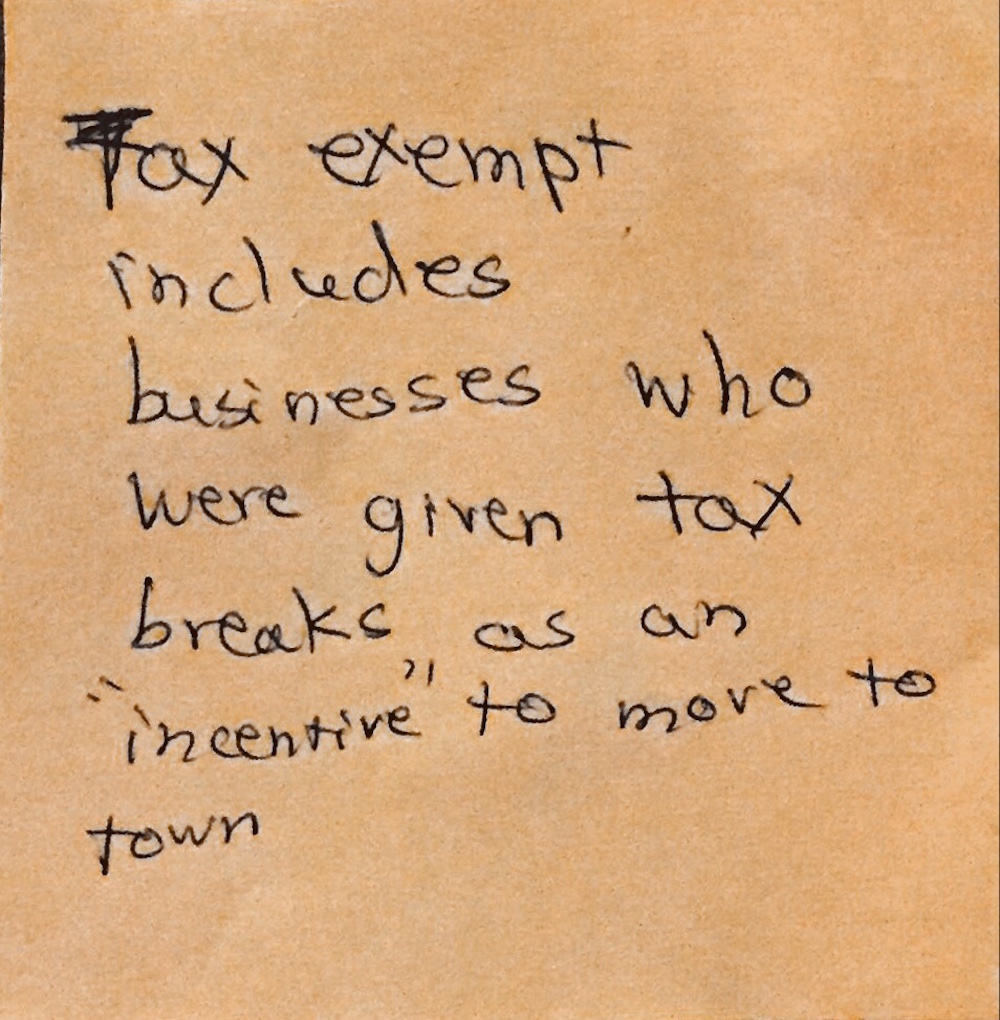 Tax exempt
includes
businesses who
were given tax
breaks as an
"incentive" to move to
town